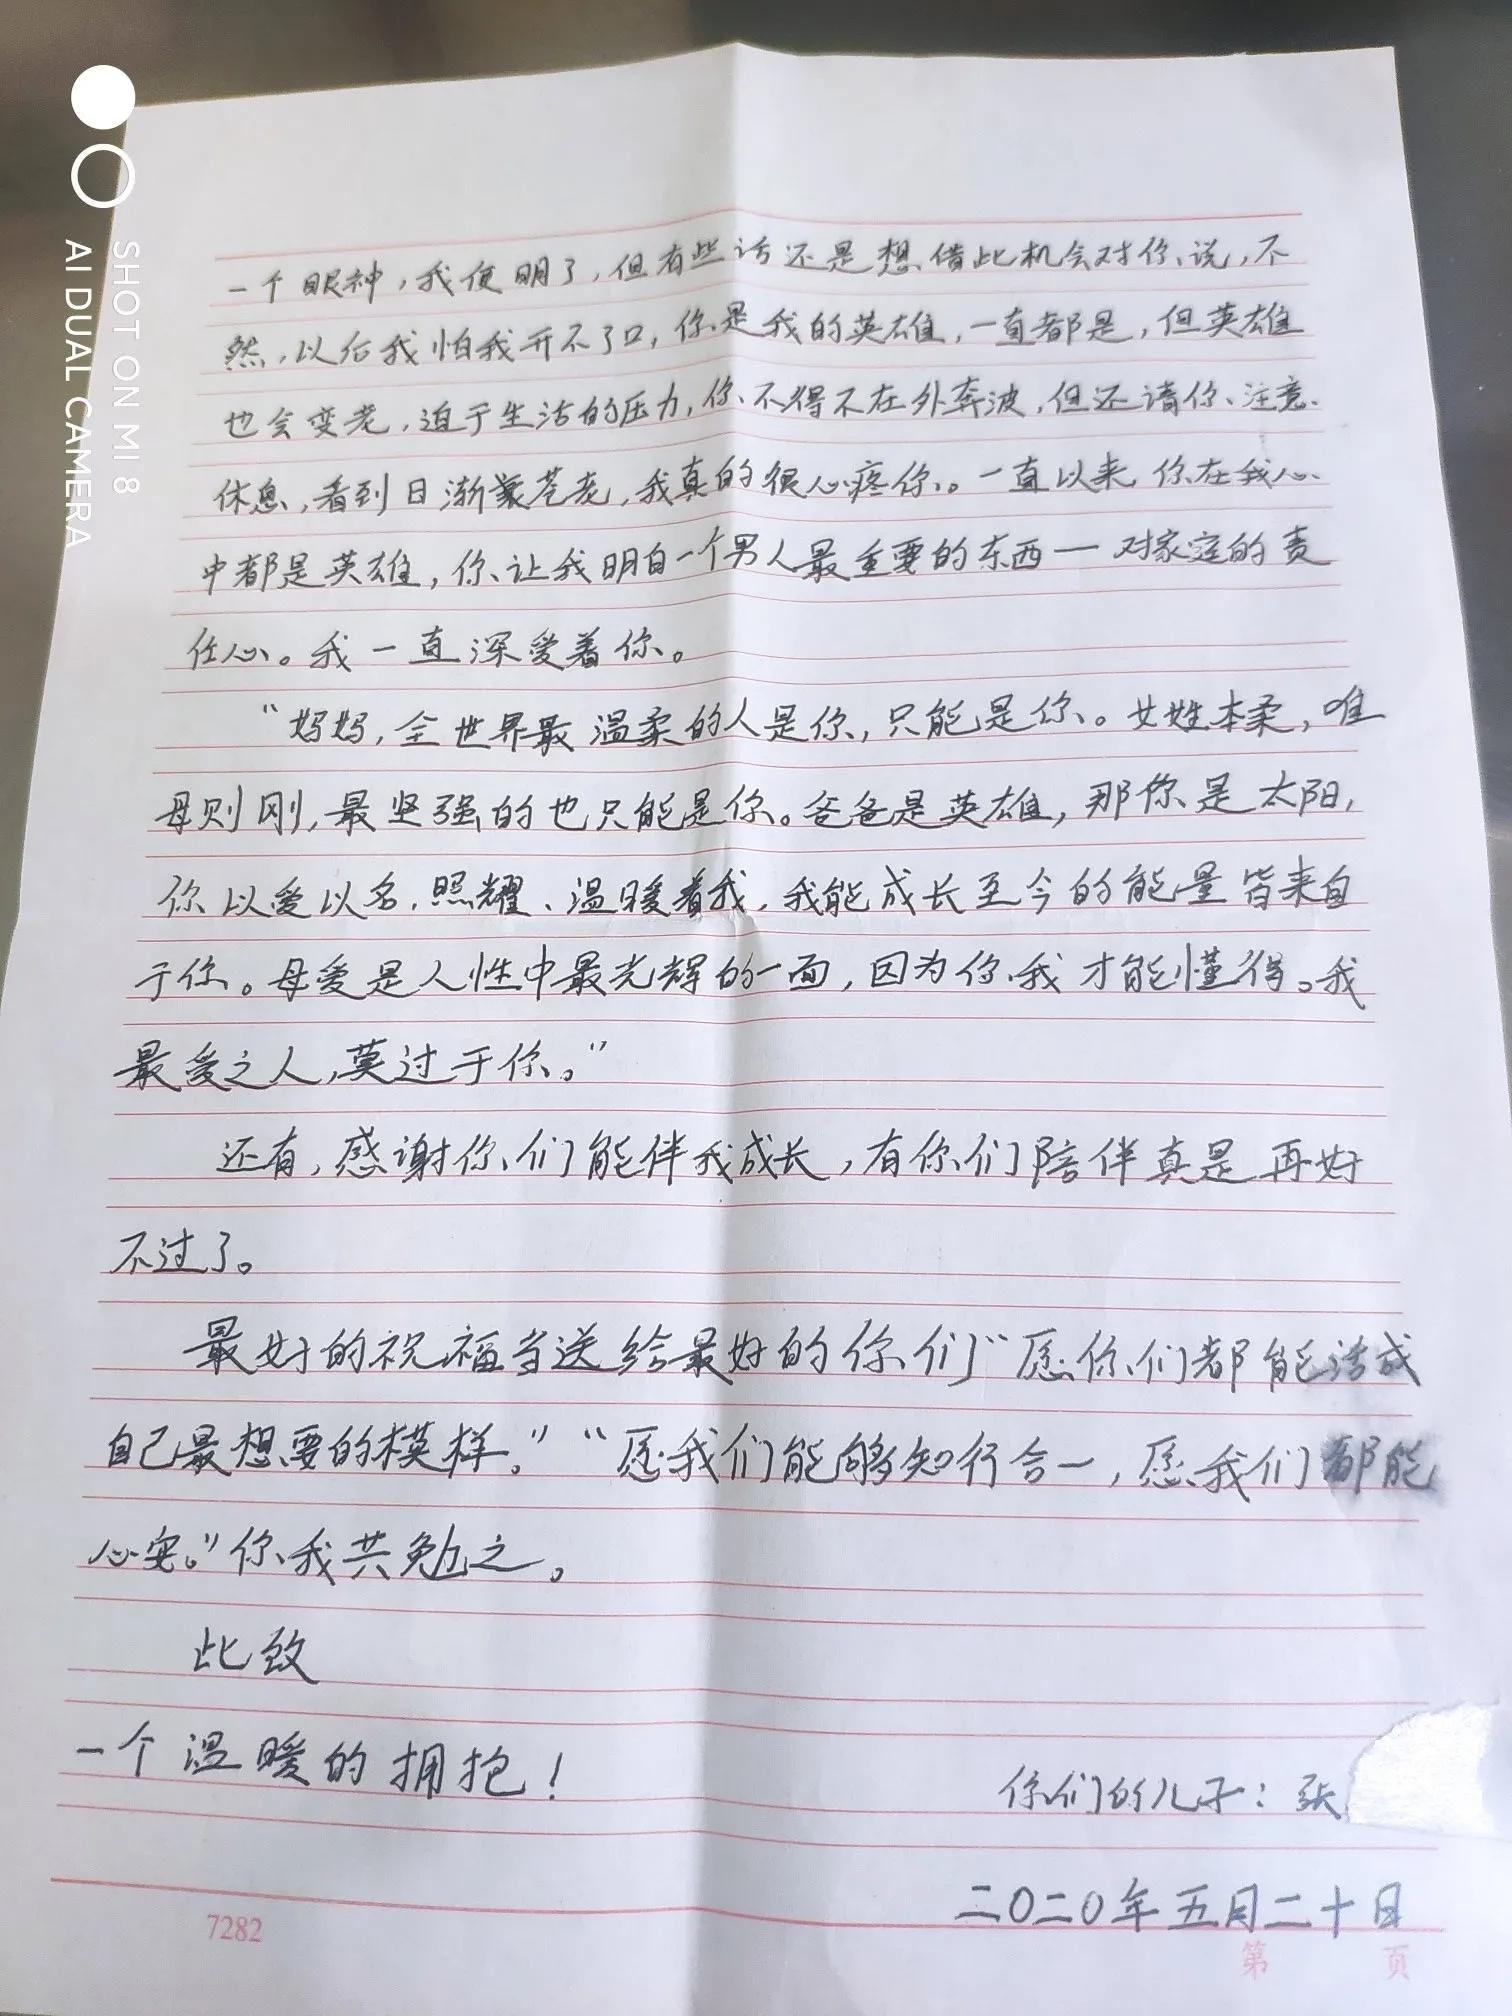 SHOT ON MI 8
AI DUAL CAMERA
一个眼神，我便明了，但有些话还是想借此机会对你说，不
然，以后我怕我开不了口，你是我的英雄，一直都是，但英雄
也会变老，迫于生活的压力，你不得不在外奔波，但还请你注意
休息，看到日渐蒙苍老，我真的很心疼你。一直以来，你在我心
中都是英雄，你让我明白一个男人最重要的东西—对家庭的责
任心。我一直深爱着你。
“妈妈，全世界最温柔的人是你，只能是你。女姓本柔，唯
母则刚，最坚强的也只能是你。爸爸是英雄，那你是太阳，
你以爱以名，照耀、温暖着我，我能成长至今的能量皆来自
于你。母爱是人性中最光辉的一面，因为你我才能懂得。我
最爱之人，莫过于你。”
还有，感谢你们能伴我成长，有你们陪伴真是再好
不过了。
最好的祝福当送给最好的你们“愿你们都能活成
自己最想要的模样。”“愿我们能够知行合一，愿我们都能
心安。”你我共勉之。
此致
一个温暖的拥抱！
你们的儿子：张
二〇二〇年五月二十日
7282
第 页